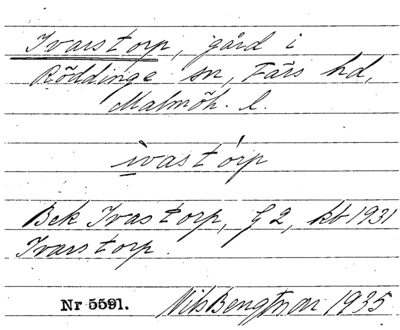 Ivarstorp, gård i
Röddinge sn, Färs hd,
Malmöh. l.
ivastórp
Bek Ivastorp, G 2, kb 1931
Ivarstorp.
Nr 5591. Nils Bengtsson 1935